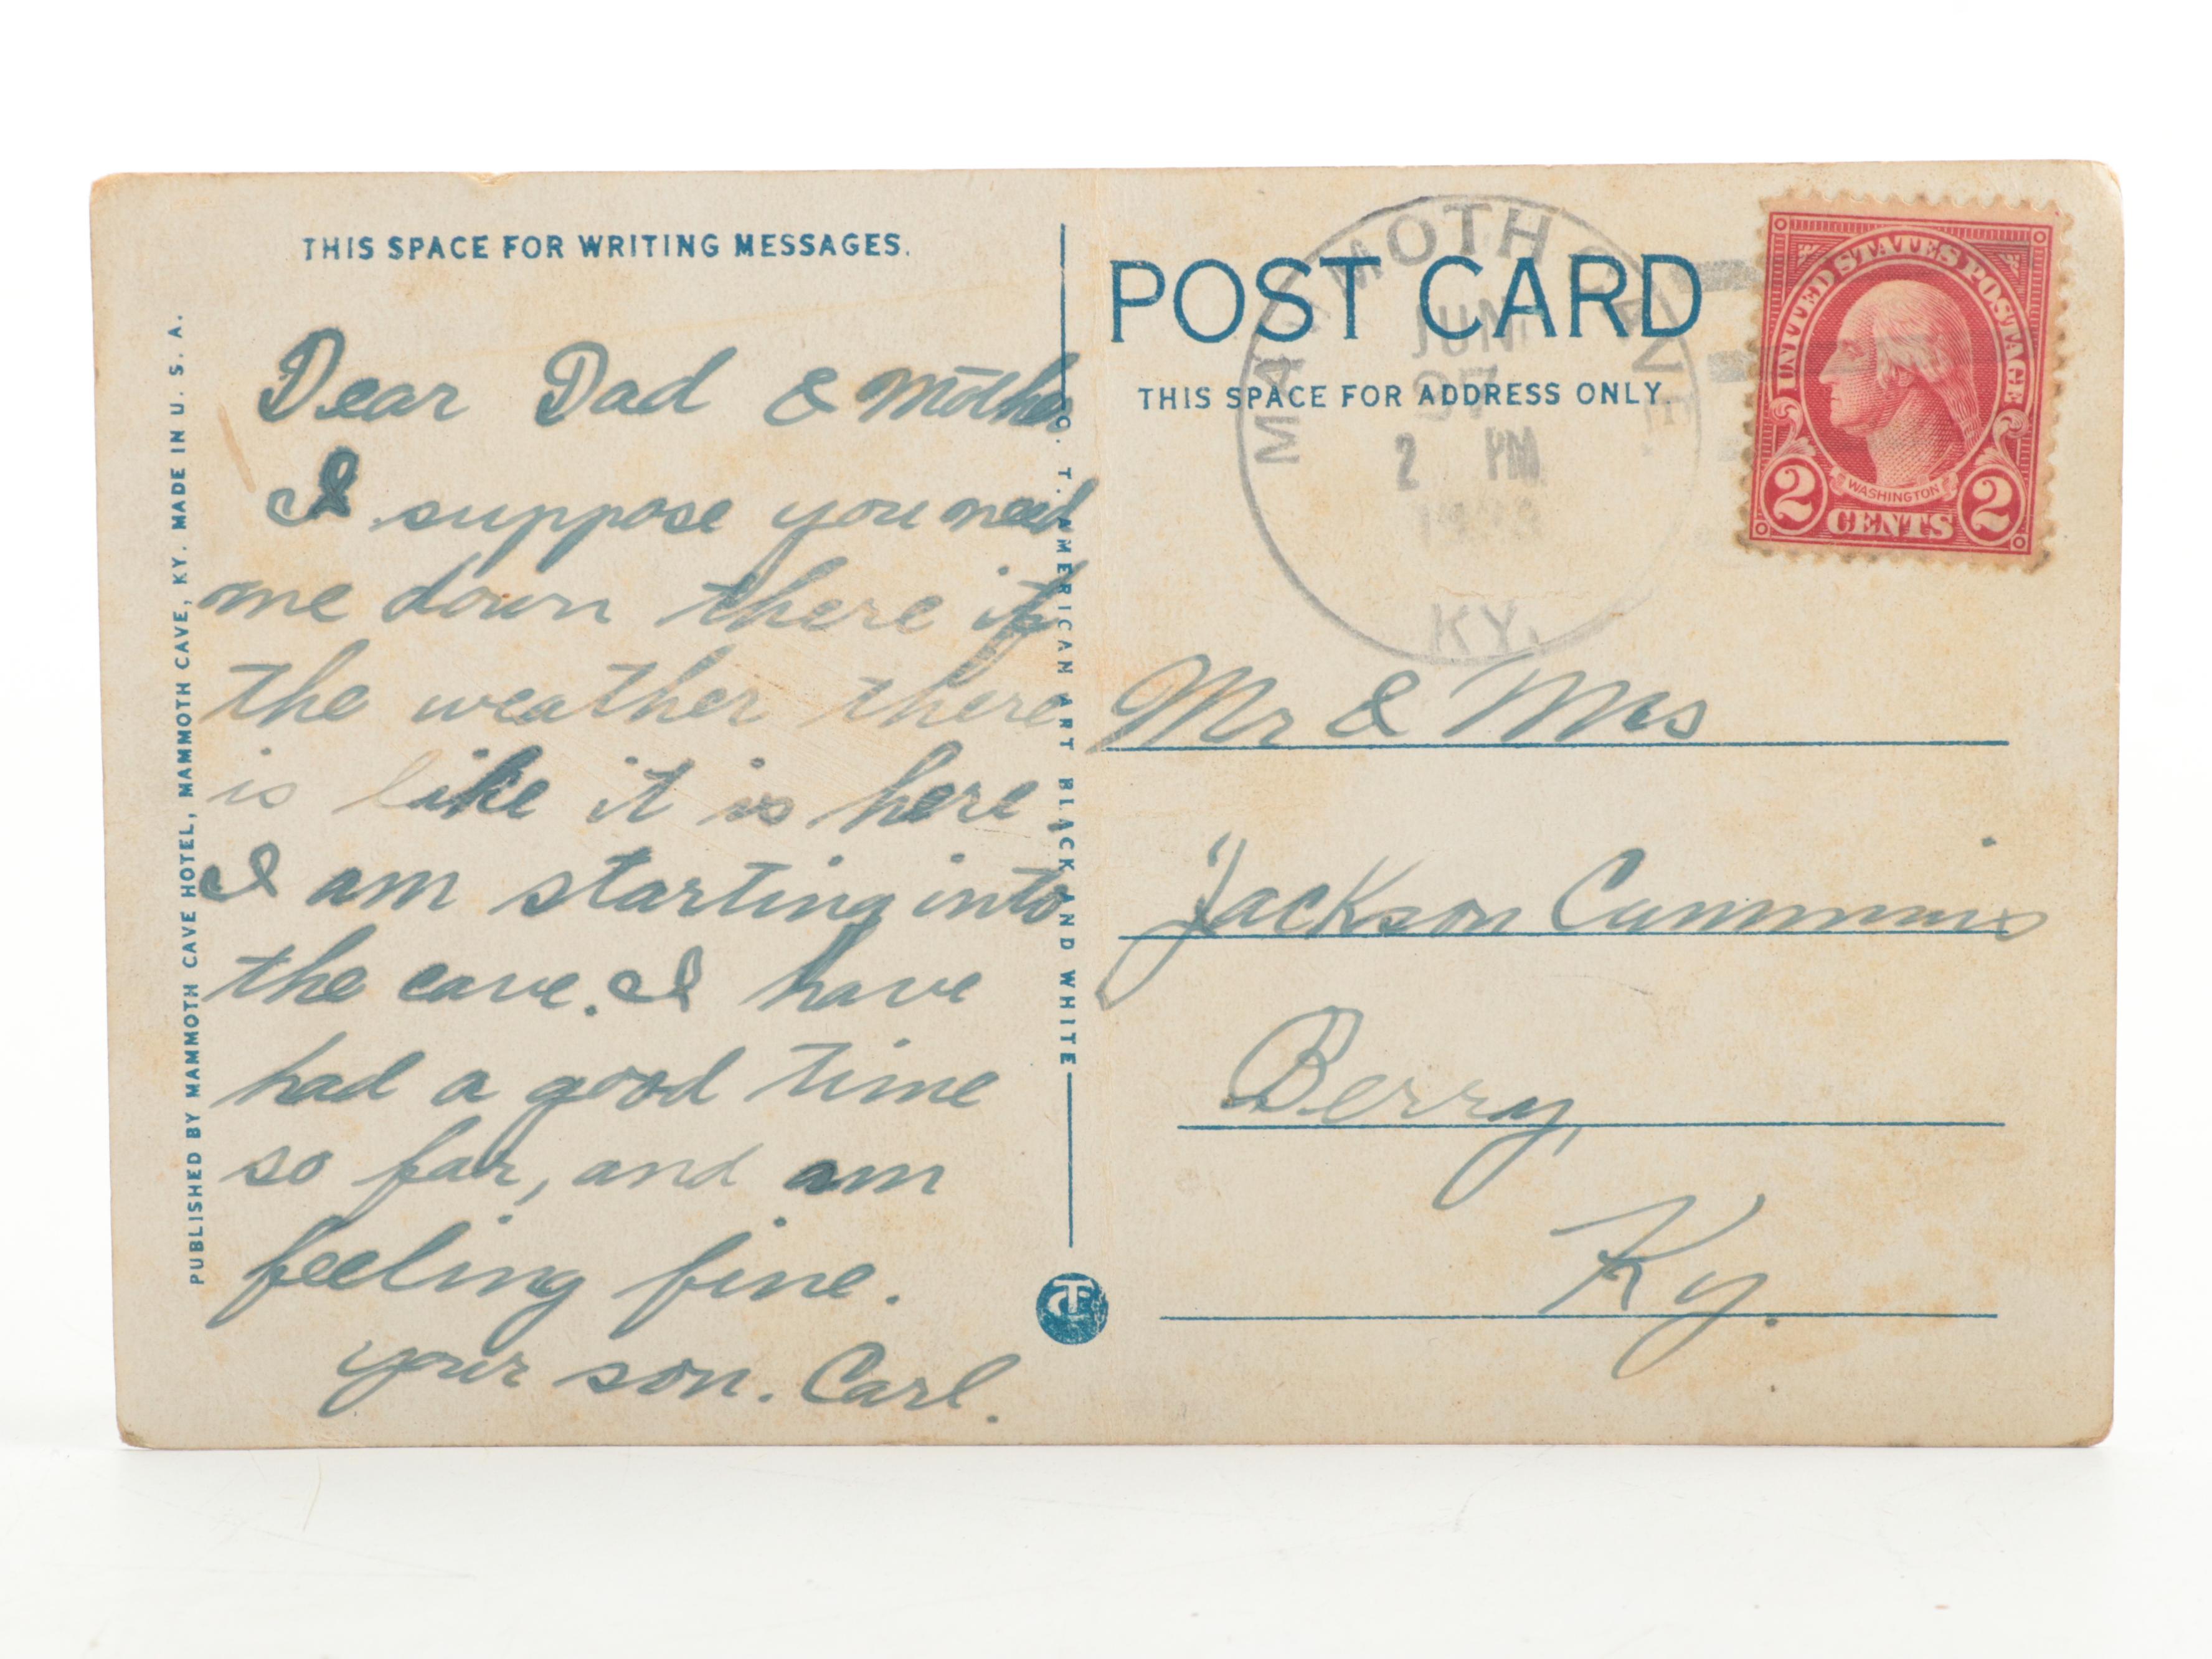 THIS SPACE FOR WRITING MESSAGES.
Dear Dad & Mother
I suppose you need
me down there if
the weather there
is like it is here.
I am starting into
the cave. I have
had a good time
so far, and am
feeling fine.
your son. Carl.
PUBLISHED BY MAMMOTH CAVE HOTEL, MAMMOTH CAVE, KY. MADE IN U. S. A.
C. T. AMERICAN ART BLACK AND WHITE
CT
POST CARD
THIS SPACE FOR ADDRESS ONLY.
MAMMOTH CAVE
JUN
27
2 PM
KY.
UNITED STATES POSTAGE
WASHINGTON
2 CENTS 2
Mr & Mrs
Jackson Cummins
Berry,
Ky.